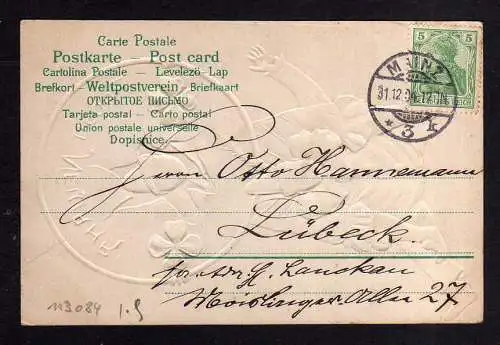 Carte Postale
Postkarte Post card
Cartolina Postale – Levelező-Lap
Brefkort - Weltpostverein - Briefkaart
ОТКРЫТОЕ ПИСЬМО
Tarjeta postal – Carto postal
Union postale universelle
Dopisnice.
5 5
MAINZ
31.12.
* 3
Herrn Otto Hannemann
Lübeck.
Lanckau
Moislinger Allee 27
113084 1.5